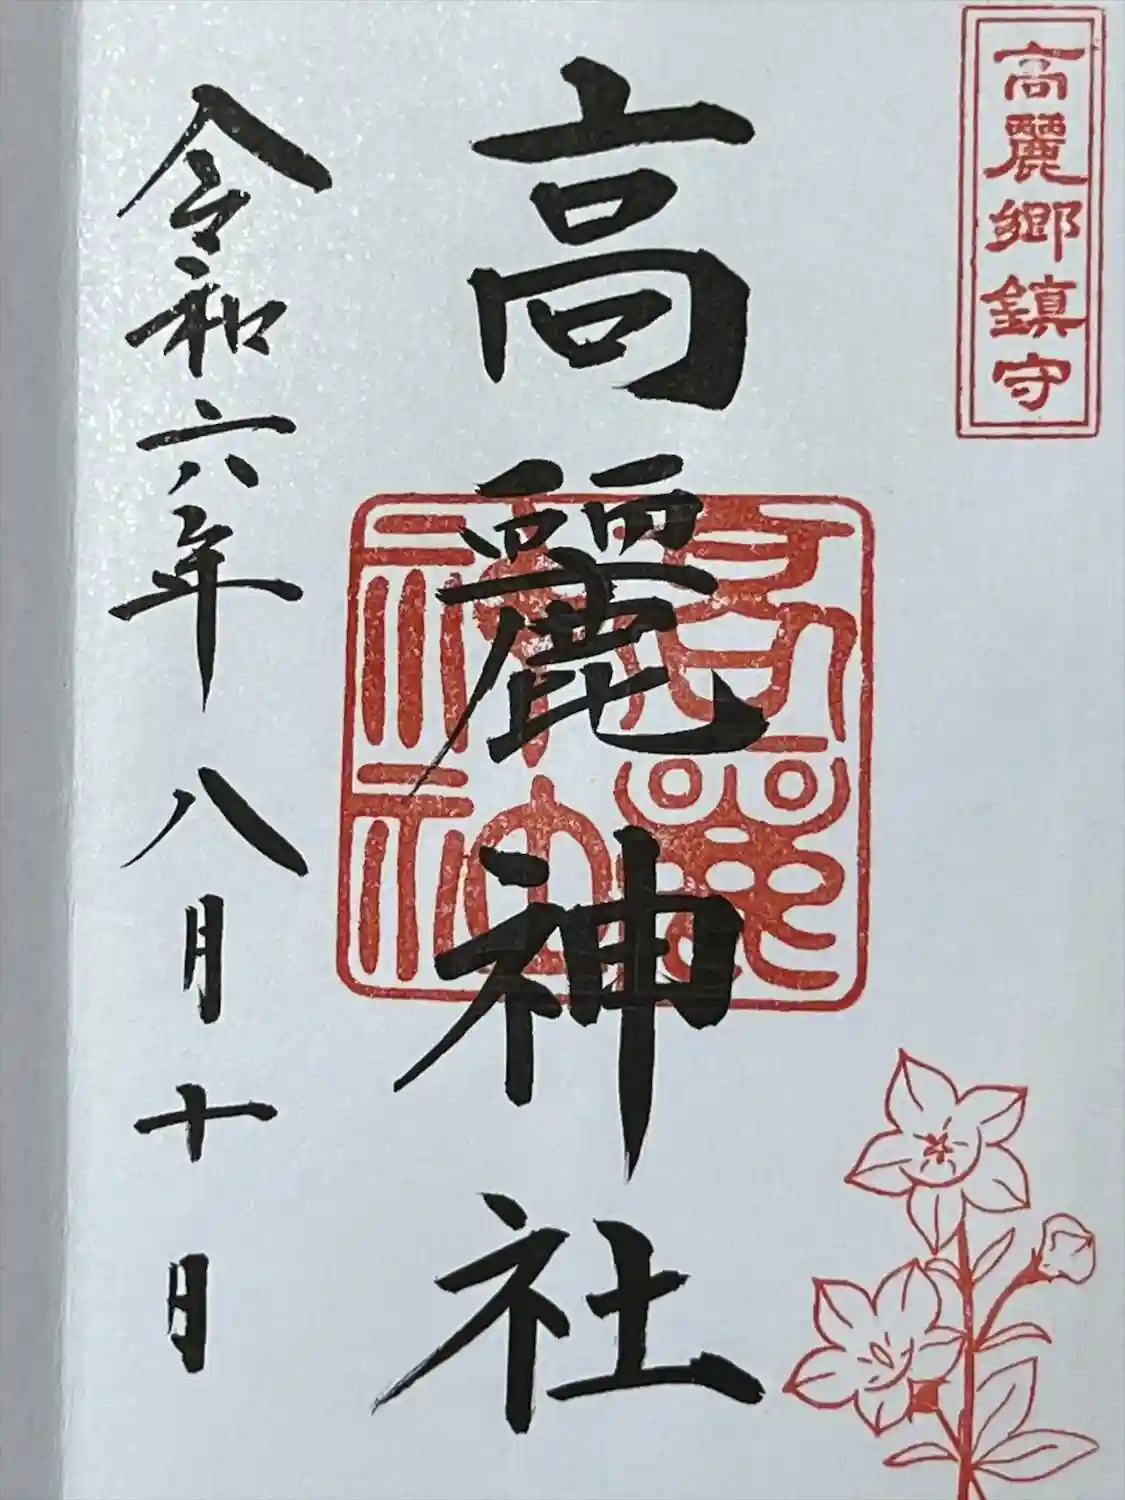 高麗郷鎮守
高麗神社
令和六年八月十日